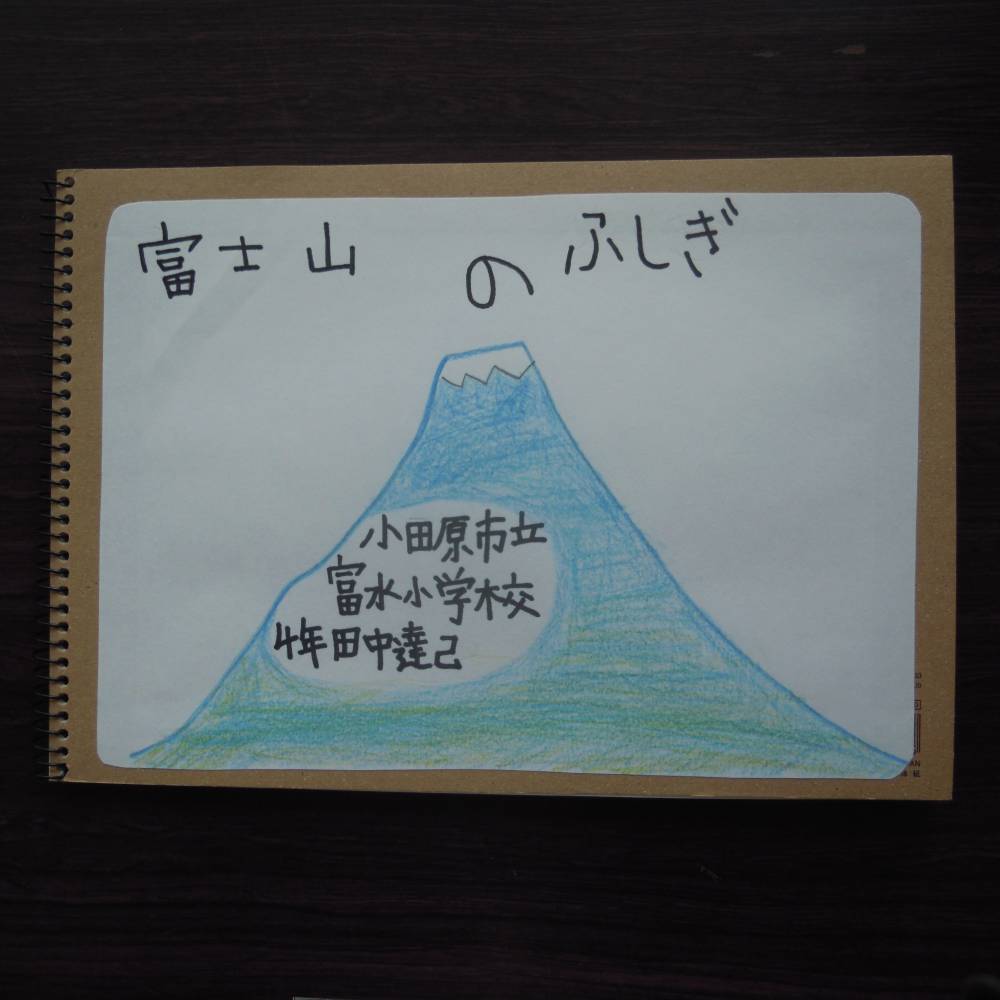 富士山のふしぎ
小田原市立
富水小学校
4年田中達己